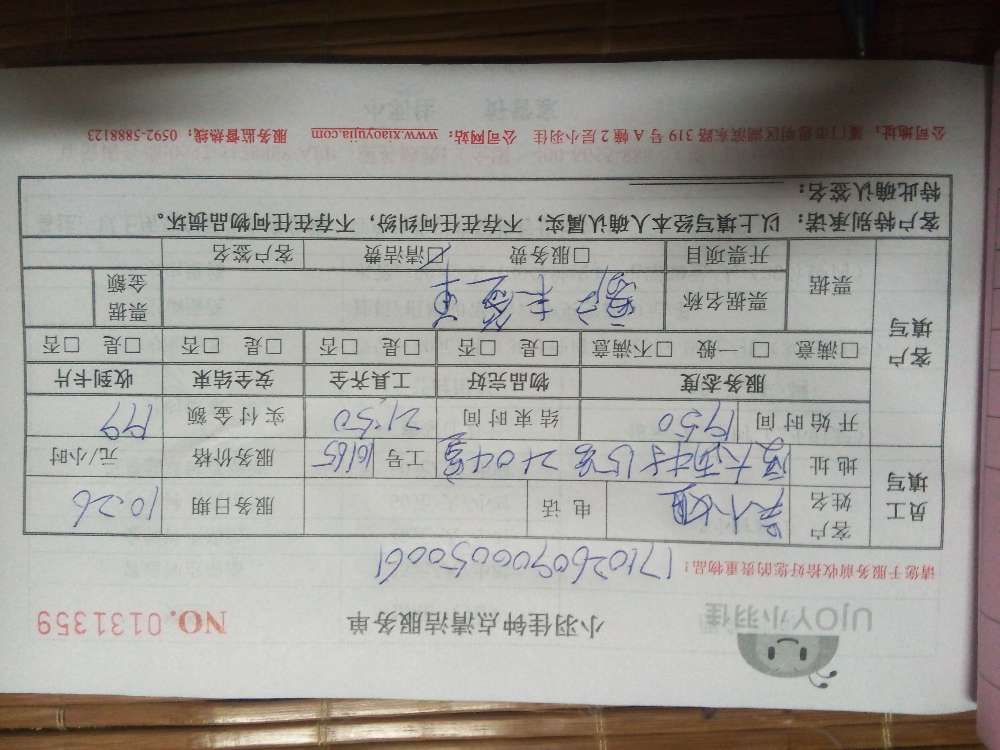 UJOY小羽佳
小羽佳钟点清洁服务单
NO.0131359
请您于服务前收拾好您的贵重物品！
171026090005006
员工填写
客户姓名 吴小姐 电话 服务日期 10.26
地址 15号2404室 工号 16165 服务价格 元/小时
开始时间 1750 结束时间 21:50 实付金额 199
客户填写
服务态度 物品完好 工具齐全 安全结束 收到卡片
□满意 □一般 □不满意 □是 □否 □是 □否 □是 □否 □是 □否
票据 票据名称 客户未签单 票据金额
开票项目 □服务费 □清洁费 客户签名
客户特别承诺：以上填写经本人确认属实，不存在任何纠纷，不存在任何物品损坏。
特此确认签名：
公司地址：厦门市思明区湖滨东路319号A幢2层小羽佳 公司网站：www.xiaoyujia.com 服务监督热线：0592-5888123